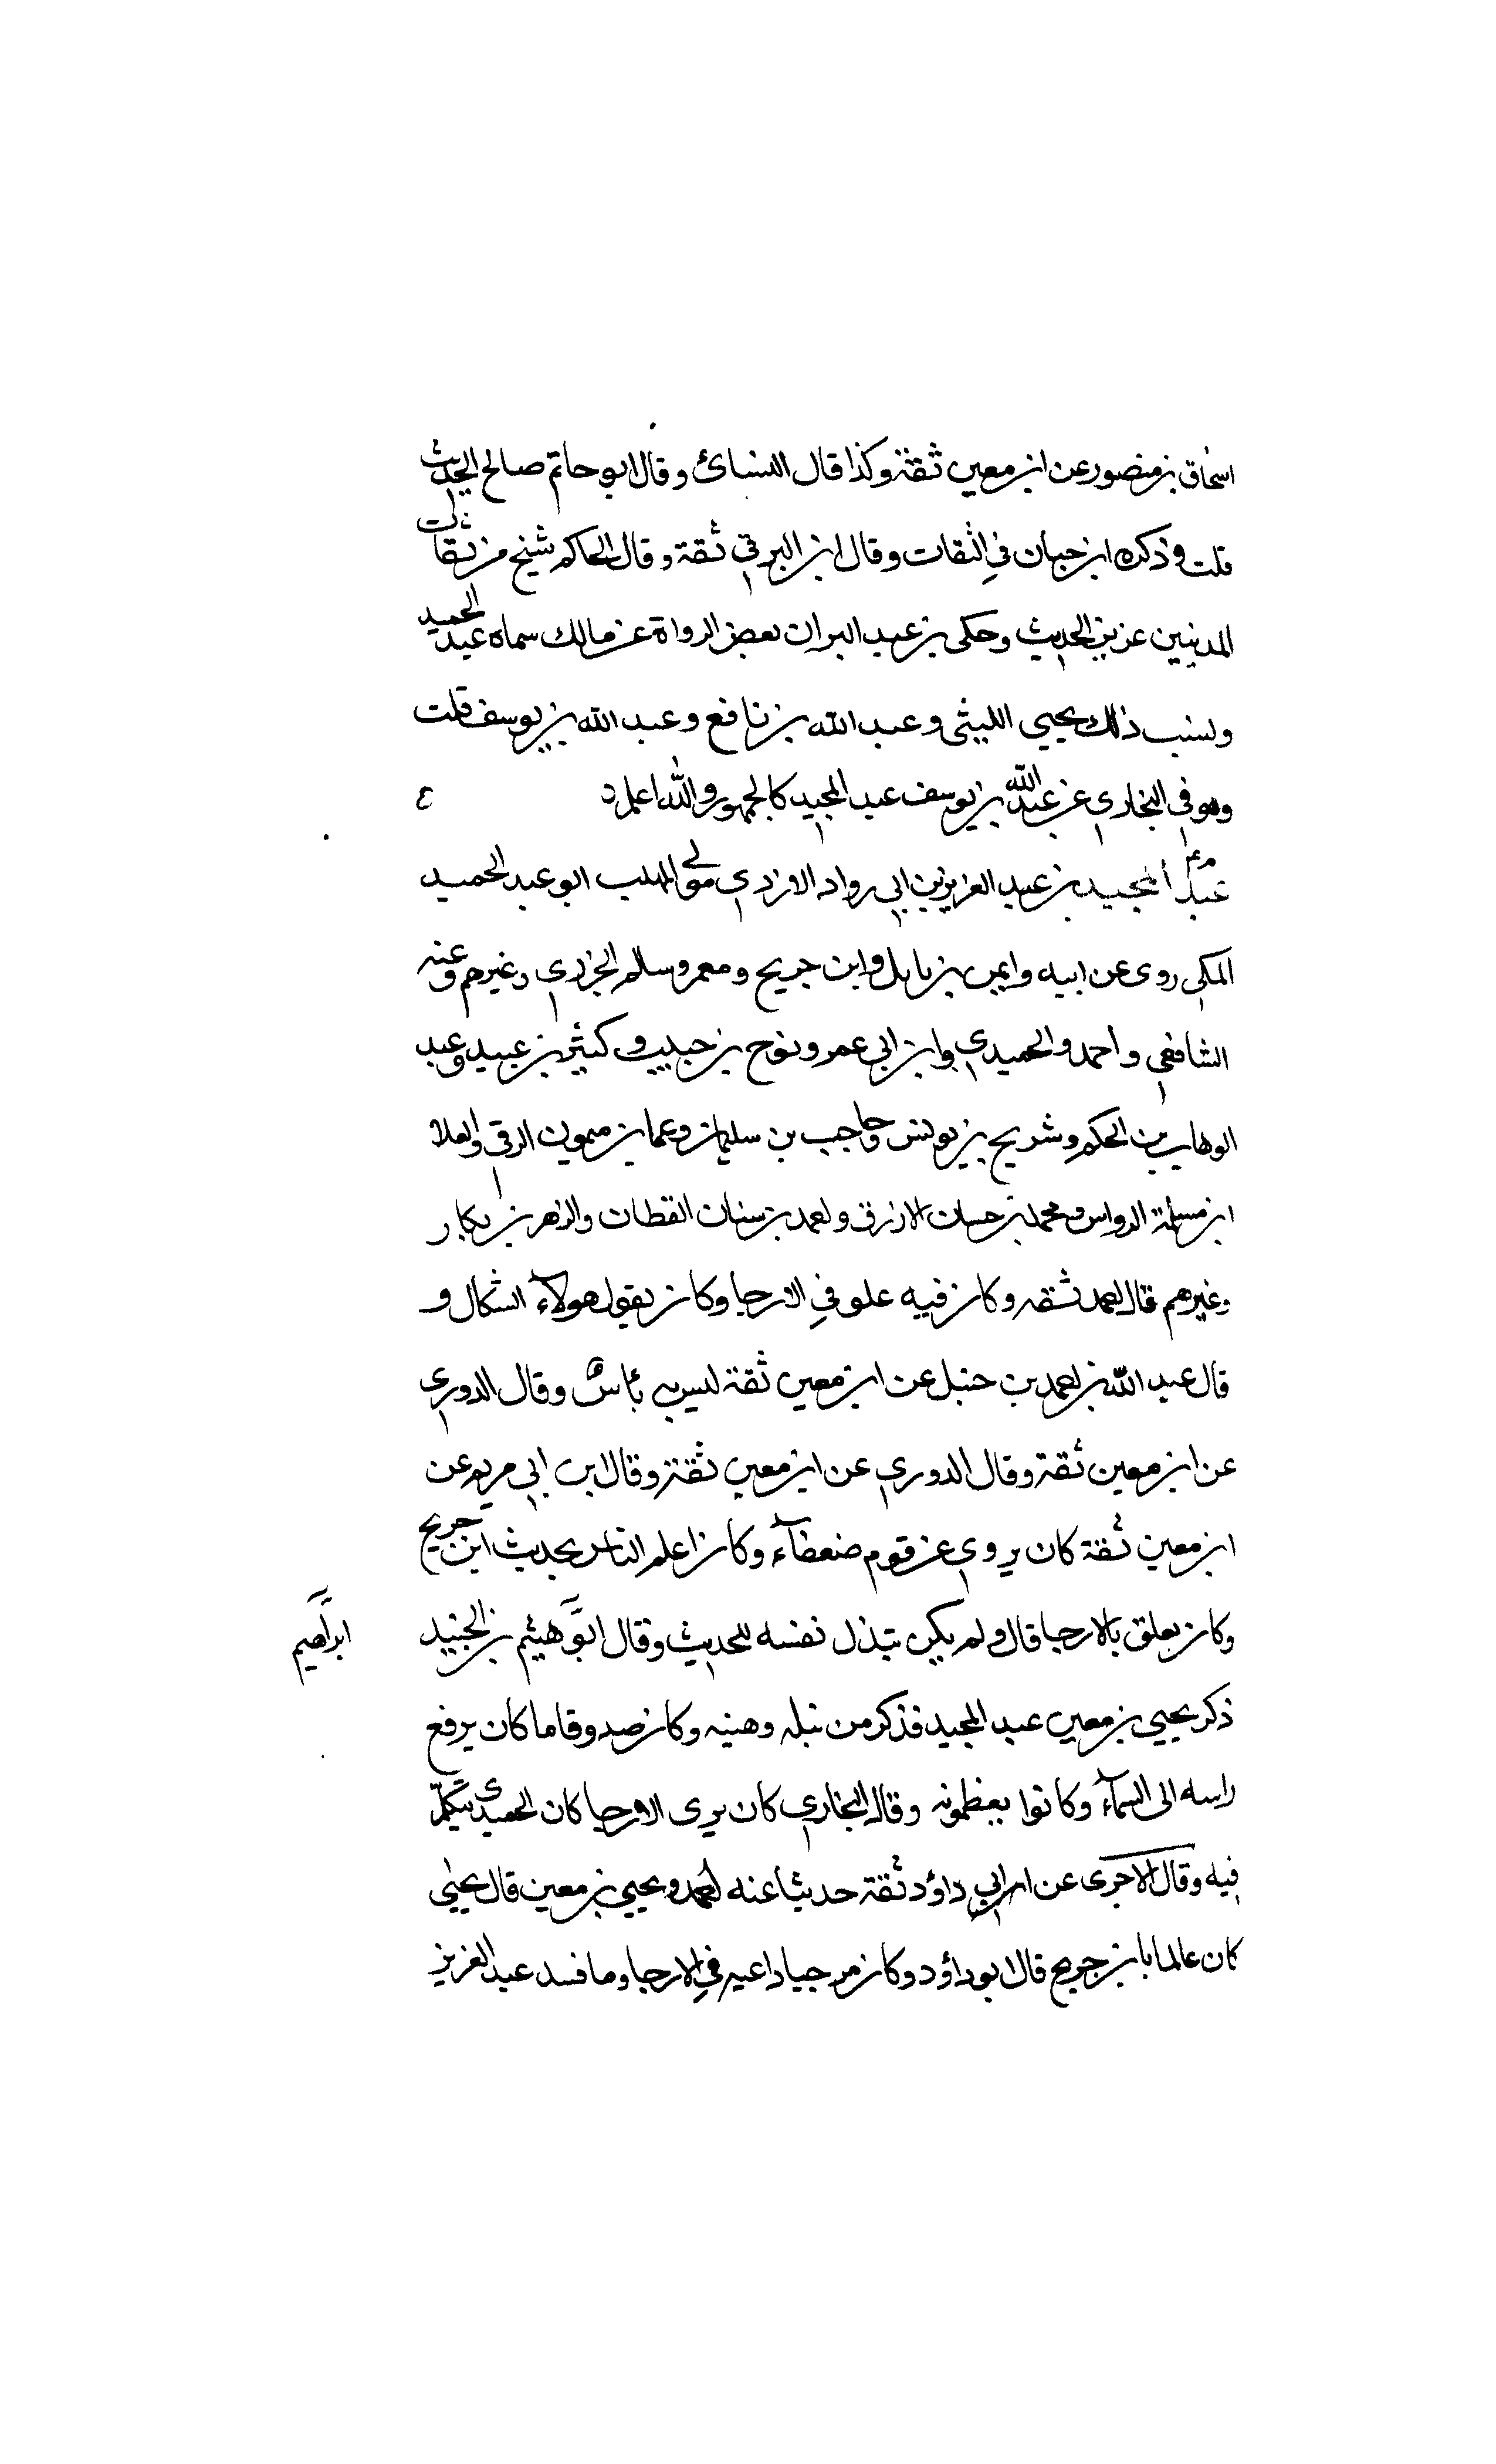 اسحاق بن منصور عن ابن معين ثقة وكذا قال النسائ وقال ابو حاتم صالح الحديث
قلت وذكره ابن حبان في الثقات وقال ابن البرقي ثقة وقال الحاكم شيخ من ثقات
المدينين عزيز الحديث وحكى بن عبد البر ان بعض الرواة عن مالك سماه عبد الحميد
ولسب ذلك يحيي الليثى وعبد الله بن نافع وعبد الله بن يوسف قلت
وهو في البخاري عن عبد الله بن يوسف عبد المجيد كالجمهور والله اعلم
م عم
عبد المجيد بن عبد العزيز بن ابي رواد الازدي مولى المهلب ابو عبد الحميد
المكي روى عن ابيه وايمن بن نابل وابن جريج ومعمر وسالم الجزري وغيرهم وعنه
الشافعي واحمد والحميدي وابن ابي عمر ونوح بن حبيب وكثير بن عبيد وعبد
الوهاب بن الحكم وشريح بن يونس وحاجب بن سليمان وعمار بن ميمون الرقي والعلا
ابن مسلمة الرواس ومحمد بن حسان الازرق واحمد بن سنان القطان والزهر بن بكار
وغيرهم قال احمد ثقه وكان فيه علو في الارجا وكان يقول هولآء الشكاك و
قال عبد الله بن احمد بن حنبل عن ابن معين ثقة ليس به بأس وقال الدوري
عن ابن معين ثقة وقال الدوري عن ابن معين ثقة وقال ابن ابي مريم عن
ابن معين ثقة كان يروي عن قوم ضعفآء وكان اعلم الناس بحديث ابن جريج
وكان يعلق بالارجا قال ولم يكن يتبذل نفسه للحديث وقال ابو هيثم بن الجنيد
ابراهيم
ذكر يحيي بن معين عبد المجيد فذكر من نبله وهيئه وكان صدوقا ما كان يرفع
راسه الى السمآء وكانوا يعظمونه وقال البخاري كان يرى الارجا كان الحميدى يتكلم
فيه وقال الاجرى عن ابي داؤد ثقة حدثنا عنه احمد ويحيي بن معين قال يحيى
كان عالما بابن جريج قال ابو داؤد وكان مرجيا داعيه في الارجا وما فسد عبد العزيز